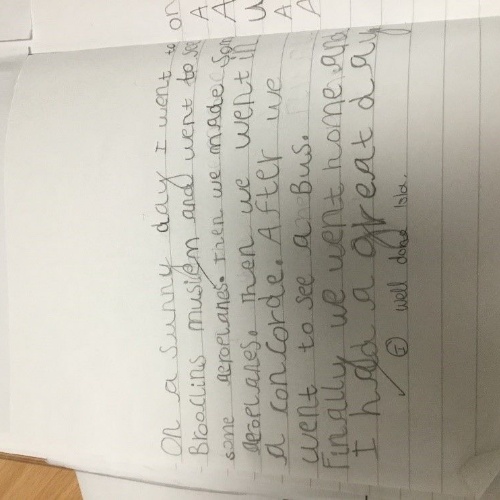 On a sunny day I went to
Broaclins musiem and went to see
some aeroplanes. Then we made som
aeroplanes. Then we went in
a concorde. After we
went to see a Bus.
Finally we went home and
I had a great day
well done